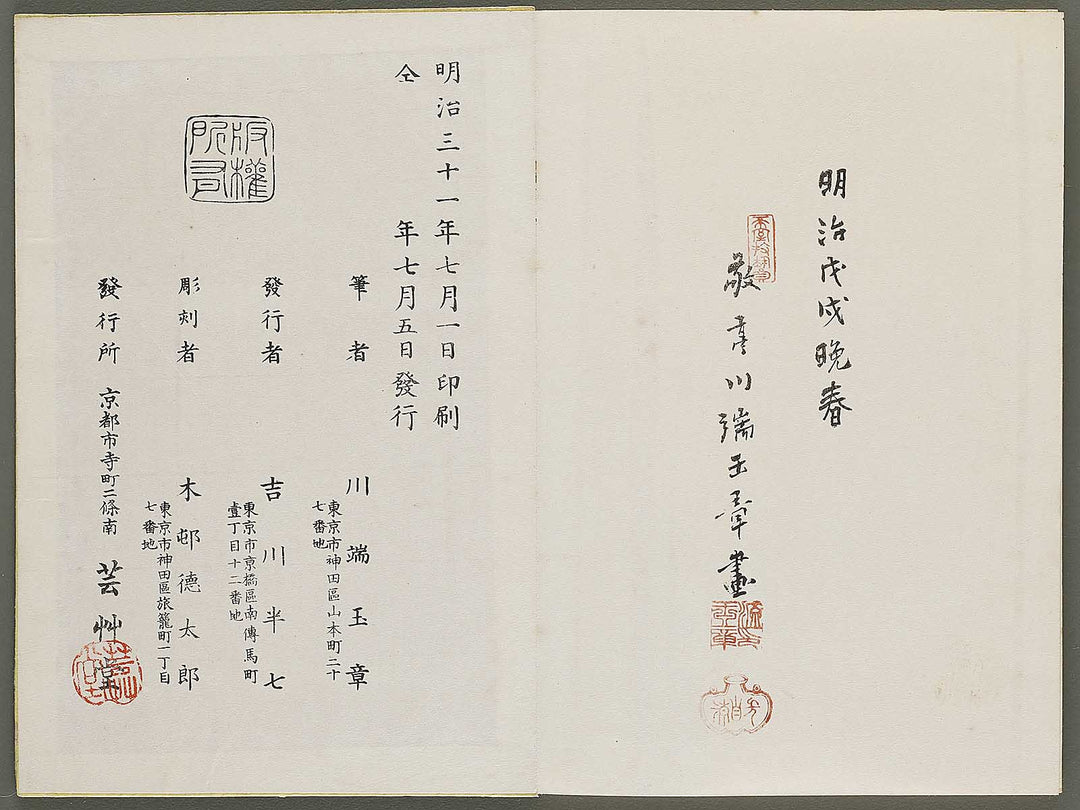 明治戊戌晩春
敬彦川端玉章畫
明治三十一年七月一日印刷
仝年七月五日發行
版權所有
筆者 川端玉章
東京市神田區山本町二十
七番地
發行者 吉川半七
東京市京橋區南傳馬町
壹丁目十二番地
彫刻者 木邨德太郎
東京市神田區旅籠町一丁目
七番地
發行所 京都市寺町二條南 芸艸堂